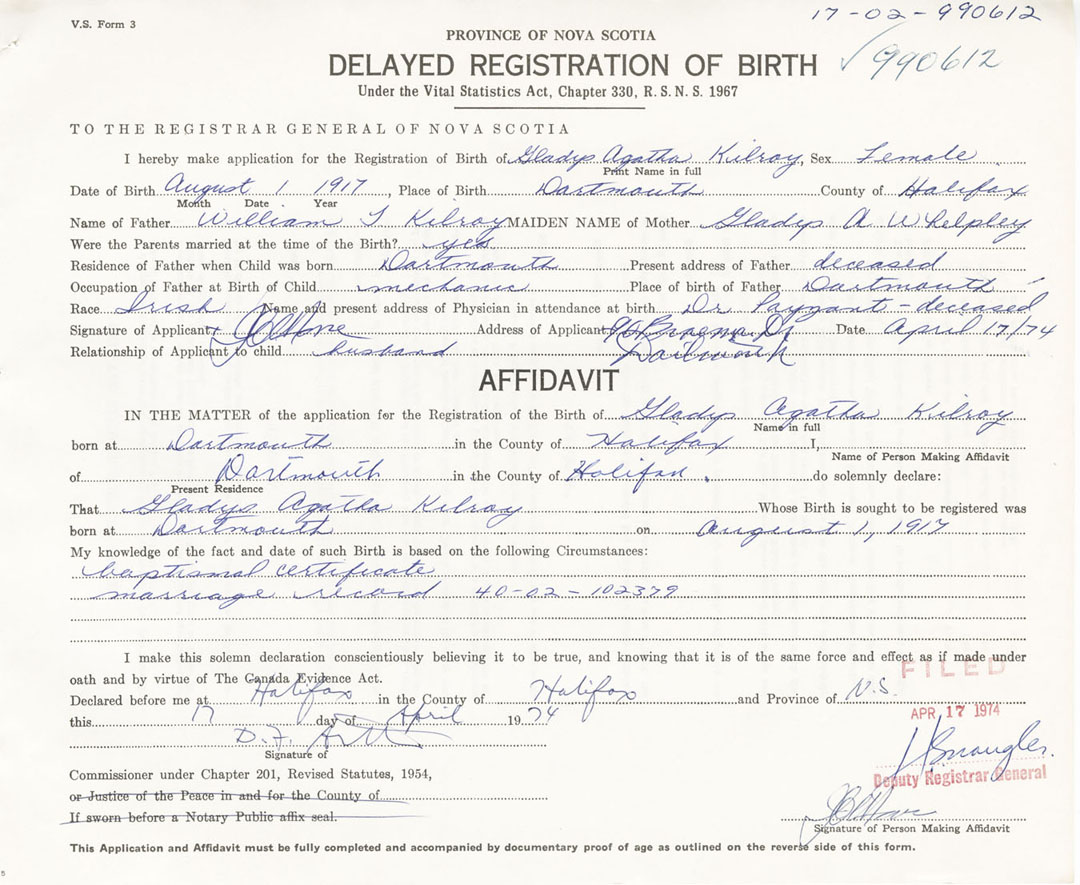 V.S. Form 3
17-02-990612
PROVINCE OF NOVA SCOTIA
DELAYED REGISTRATION OF BIRTH
✓990612
Under the Vital Statistics Act, Chapter 330, R. S. N. S. 1967
TO THE REGISTRAR GENERAL OF NOVA SCOTIA
I hereby make application for the Registration of Birth of Gladys Agatha Kilroy, Sex Female
Print Name in full
Date of Birth August 1 1917, Place of Birth Dartmouth County of Halifax
Month Date Year
Name of Father William J Kilroy MAIDEN NAME of Mother Gladys A. Whelpley
Were the Parents married at the time of the Birth? yes
Residence of Father when Child was born Dartmouth Present address of Father deceased
Occupation of Father at Birth of Child mechanic Place of birth of Father Dartmouth
Race Irish Name and present address of Physician in attendance at birth Dr Payzant - deceased
Signature of Applicant Address of Applicant Dr Date April 17/74
Relationship of Applicant to child husband Dartmouth
AFFIDAVIT
IN THE MATTER of the application for the Registration of the Birth of Gladys Agatha Kilroy
Name in full
born at Dartmouth in the County of Halifax I,
Name of Person Making Affidavit
of Dartmouth in the County of Halifax. do solemnly declare:
Present Residence
That Gladys Agatha Kilroy Whose Birth is sought to be registered was
born at Dartmouth on August 1, 1917
My knowledge of the fact and date of such Birth is based on the following Circumstances:
baptismal certificate
marriage record 40-02-102379
I make this solemn declaration conscientiously believing it to be true, and knowing that it is of the same force and effect as if made under
oath and by virtue of The Canada Evidence Act.
FILED
Declared before me at Halifax in the County of Halifax and Province of N.S.
this 17 day of April 1974
APR 17 1974
D. F.
Signature of
Deputy Registrar General
Commissioner under Chapter 201, Revised Statutes, 1954,
or Justice of the Peace in and for the County of
If sworn before a Notary Public affix seal.
Signature of Person Making Affidavit
This Application and Affidavit must be fully completed and accompanied by documentary proof of age as outlined on the reverse side of this form.
5